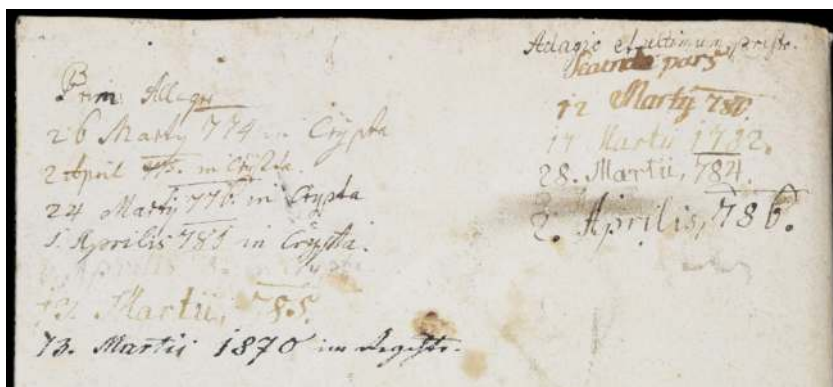 Primi Allegri
26 Marty 774 in Crÿpta
2 April 775. in Crÿpta.
24 Martÿ 776. in Crypta
5. Aprilis 789 in Crÿpta.
Aprilis in Crypta
17. Martii, 785.
13. Martii 1870 im
Adagio et ultimum,
Secunda pars
12 Martÿ 781.
17 Martii 1782.
28. Martii, 784.
2. Aprilis, 786.